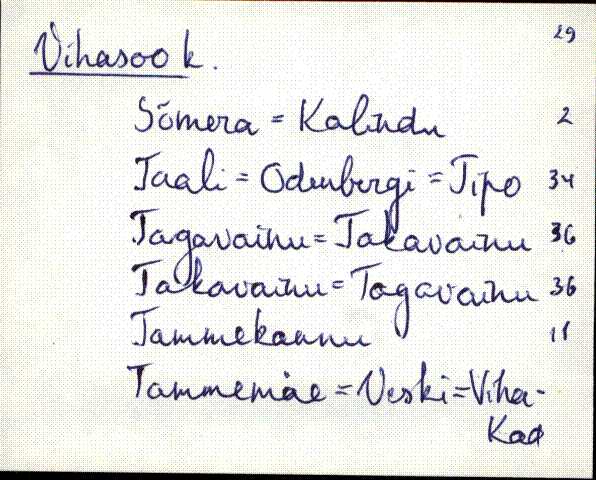 29
Vihasoo k.
Sõmera = Kalindu 2
Taali = Odenbergi = Tipo 34
Tagavainu = Takavainu 36
Takavainu = Tagavainu 36
Tammekannu 11
Tammemäe = Veski = Viha-
kad